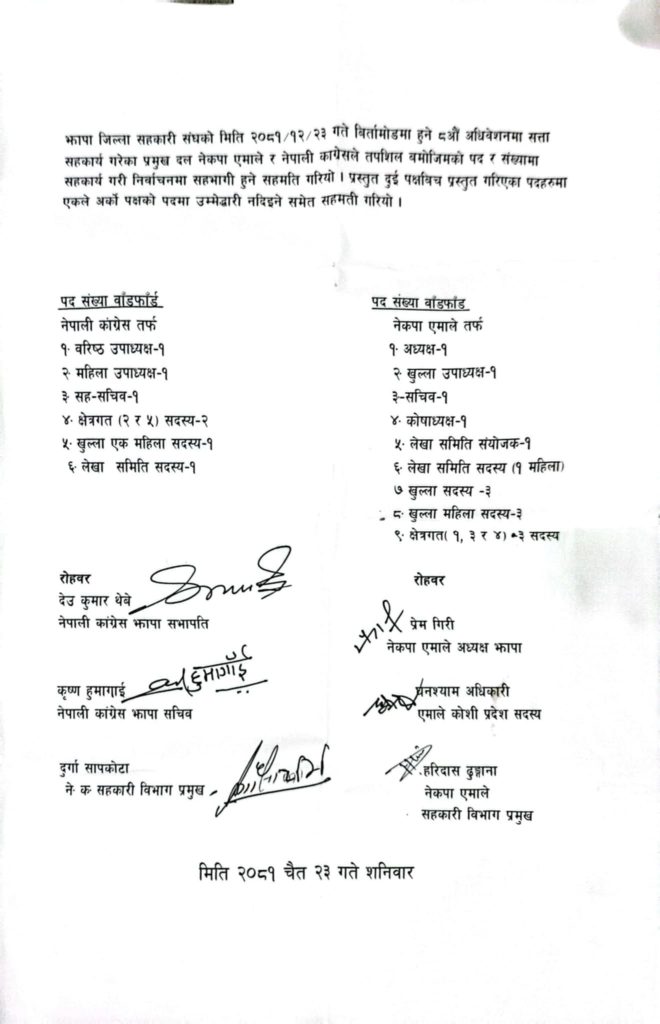 झापा जिल्ला सहकारी संघको मिति २०८१/१२/२३ गते बिर्तामोडमा हुने ८औं अधिवेशनमा सत्ता
सहकार्य गरेका प्रमुख दल नेकपा एमाले र नेपाली कांग्रेसले तपशिल बमोजिमको पद र संख्यामा
सहकार्य गरी निर्वाचनमा सहभागी हुने सहमति गरियो । प्रस्तुत दुई पक्षबिच प्रस्तुत गरिएका पदहरुमा
एकले अर्को पक्षको पदमा उम्मेद्वारी नदिइने समेत सहमती गरियो ।
पद संख्या बाँडफाँर्ड
नेपाली कांग्रेस तर्फ
१· वरिष्ठ उपाध्यक्ष-१
२· महिला उपाध्यक्ष-१
३· सह-सचिव-१
४· क्षेत्रगत (२ र ५) सदस्य-२
५· खुल्ला एक महिला सदस्य-१
६· लेखा समिति सदस्य-१
पद संख्या बाँडफाँड
नेकपा एमाले तर्फ
१· अध्यक्ष-१
२· खुल्ला उपाध्यक्ष-१
३-सचिव-१
४· कोषाध्यक्ष-१
५· लेखा समिति संयोजक-१
६· लेखा समिति सदस्य (१ महिला)
७ खुल्ला सदस्य -३
८· खुल्ला महिला सदस्य-३
९· क्षेत्रगत( १, ३ र ४) -३ सदस्य
रोहवर
देउ कुमार थेबे
नेपाली कांग्रेस झापा सभापति
कृष्ण हुमागाई
हुमागाँई
नेपाली कांग्रेस झापा सचिव
दुर्गा सापकोटा
ने· क सहकारी विभाग प्रमुख
रोहवर
प्रेम गिरी
नेकपा एमाले अध्यक्ष झापा
घनश्याम अधिकारी
एमाले कोशी प्रदेश सदस्य
हरिदास ढुङ्गाना
नेकपा एमाले
सहकारी विभाग प्रमुख
मिति २०८१ चैत २३ गते शनिवार